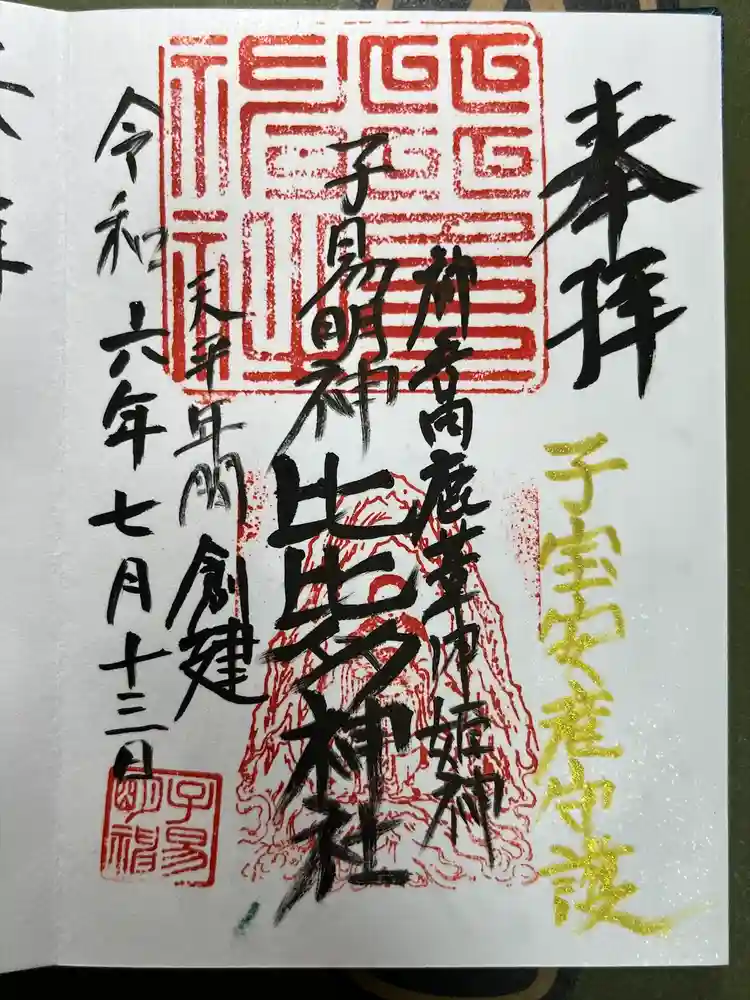 奉拝
子宝安産守護
鹿葦
姫神
子易明神
比比多神社
天平年間創建
令和六年七月十三日
比比多神社
子易明神